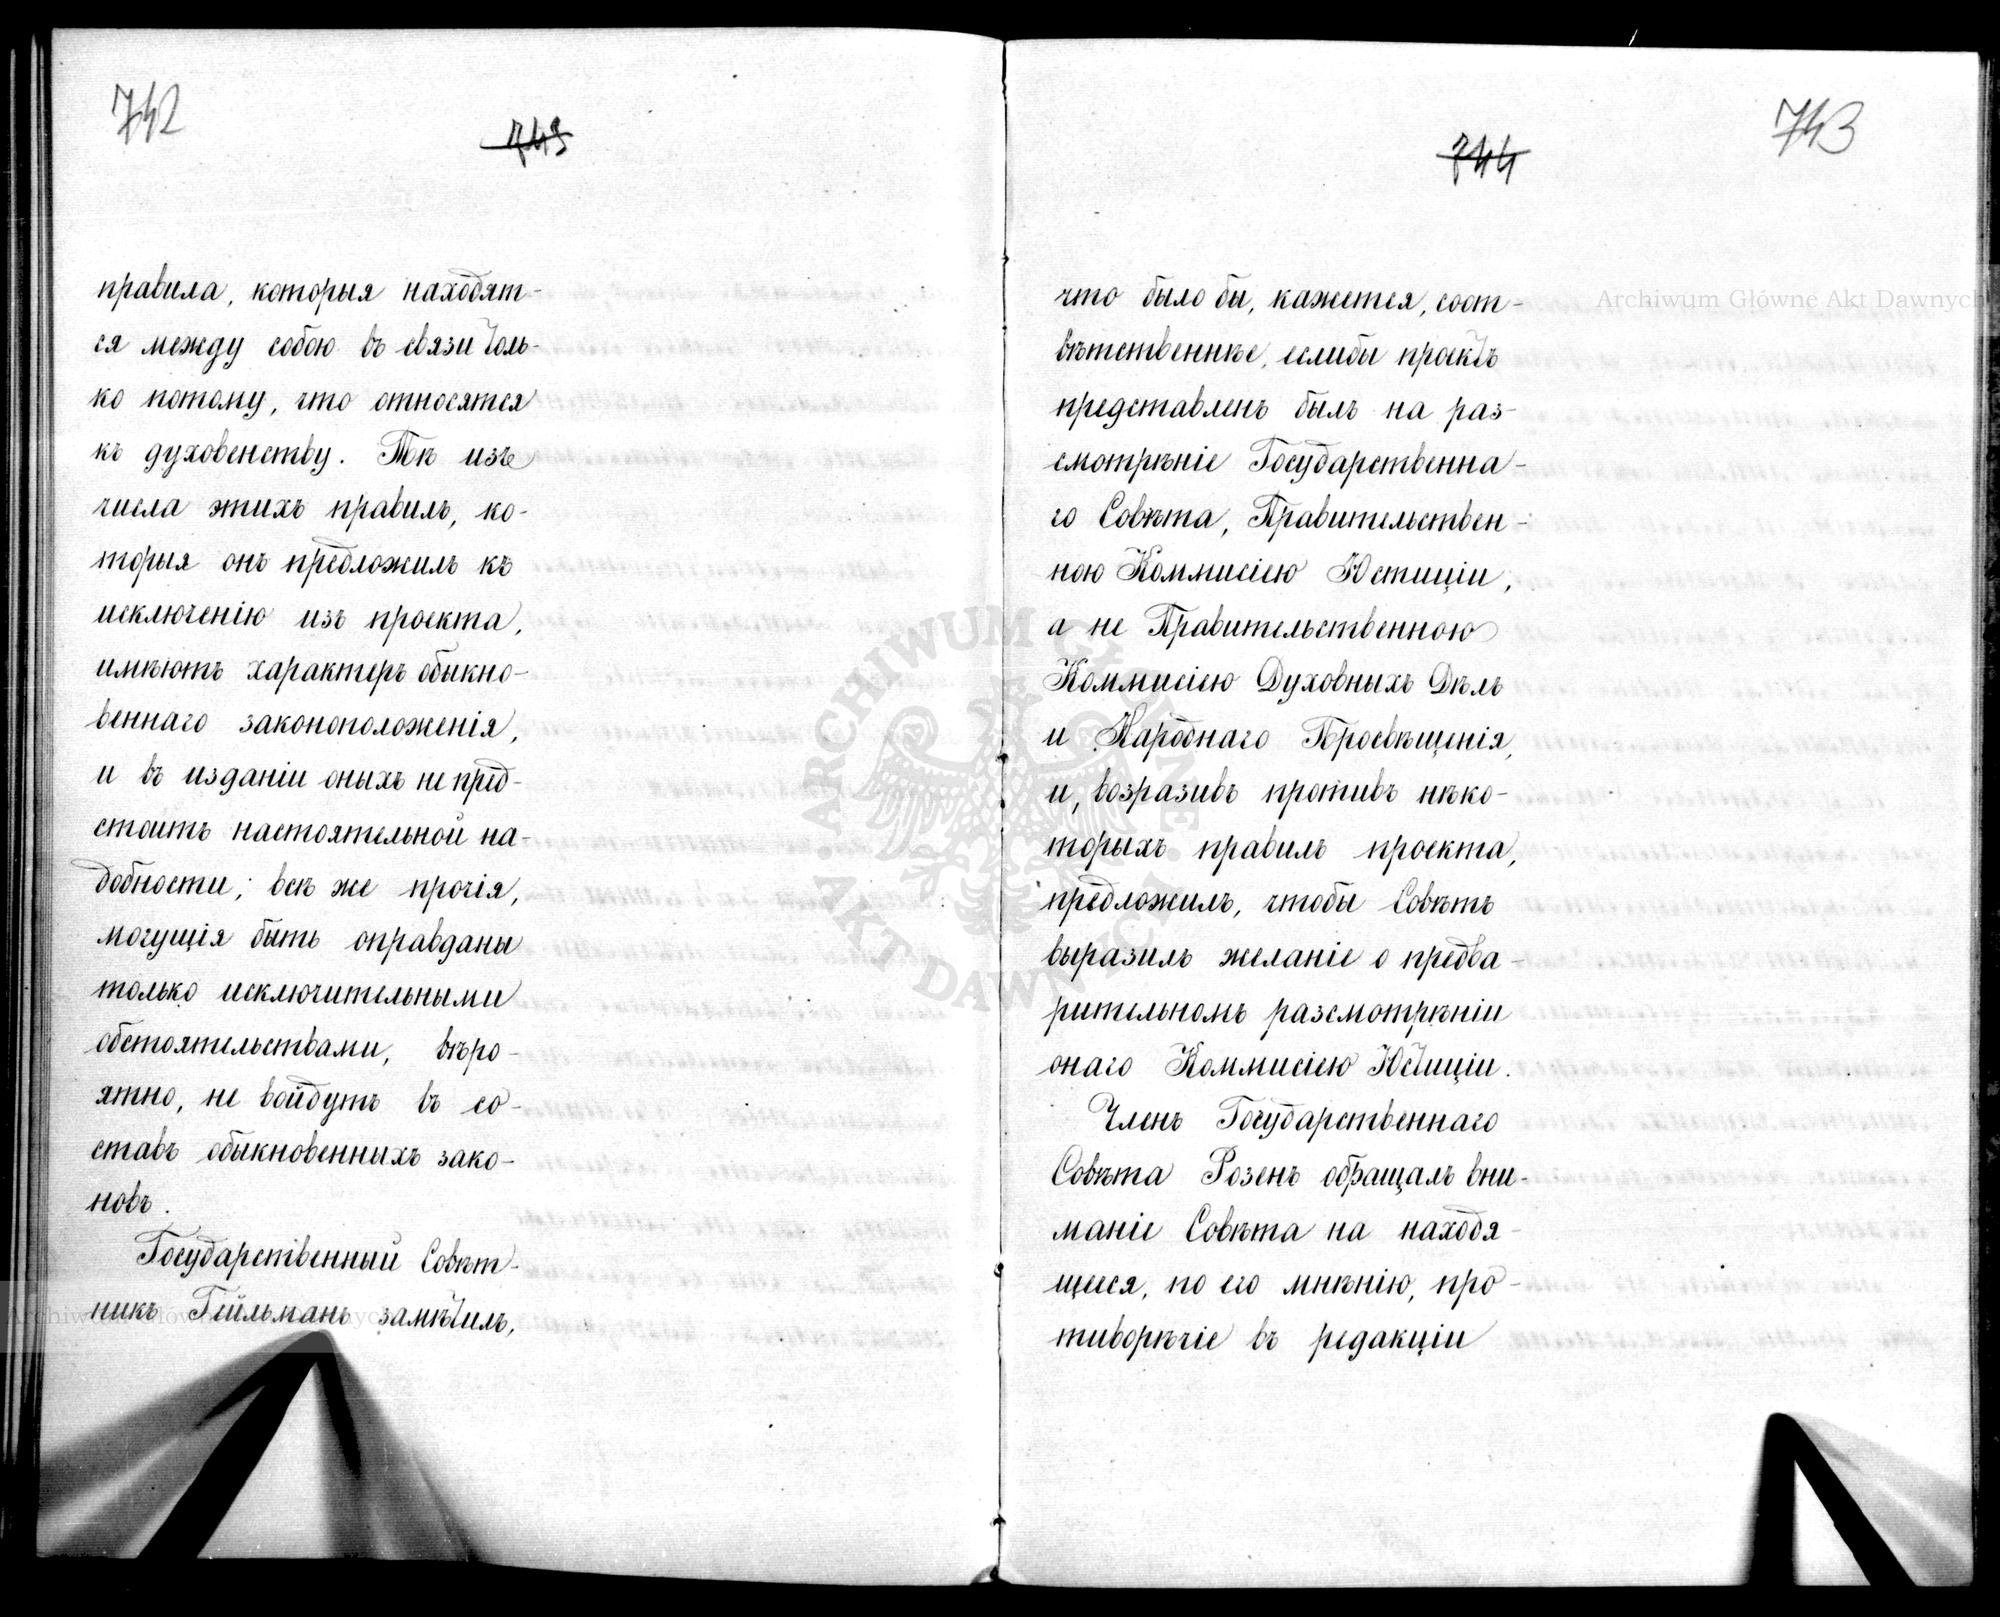 742
743
правила, которыя находят-
ся между собою въ связи толь-
ко потому, что относятся
къ духовенству. Тѣ изъ
числа этихъ правилъ, ко-
торыя онъ предложилъ къ
исключенію изъ проекта,
имѣютъ характеръ обыкно-
веннаго законоположенія,
и въ изданіи оныхъ не пред-
стоитъ настоятельной на-
добности; всѣ же прочія,
могущія быть оправданы
только исключительными
обстоятельствами, вѣро-
ятно, не войдутъ въ со-
ставъ обыкновенныхъ зако-
новъ.
Государственный Совѣт-
никъ Гейльманъ замѣтилъ,
743
744
что было бы, кажется, соот-
вѣтственнѣе, еслибы проектъ
представленъ былъ на раз-
смотрѣніе Государственна-
го Совѣта, Правительствен-
ною Коммисіею Юстиціи,
а не Правительственною
Коммисіею Духовныхъ Дѣлъ
и Народнаго Просвѣщенія,
и, возразивъ противъ нѣко-
торыхъ правилъ проекта,
предложилъ, чтобы Совѣтъ
выразилъ желаніе о предва-
рительномъ разсмотрѣніи
онаго Коммисіею Юстиціи.
Членъ Государственнаго
Совѣта Розенъ обращалъ вни-
маніе Совѣта на находя-
щееся, по его мнѣнію, про-
тиворѣчіе въ редакціи
Archiwum Główne Akt Dawnych
Archiwum Główne Akt Dawnych
ARCHIWUM GŁÓWNE AKT DAWNYCH